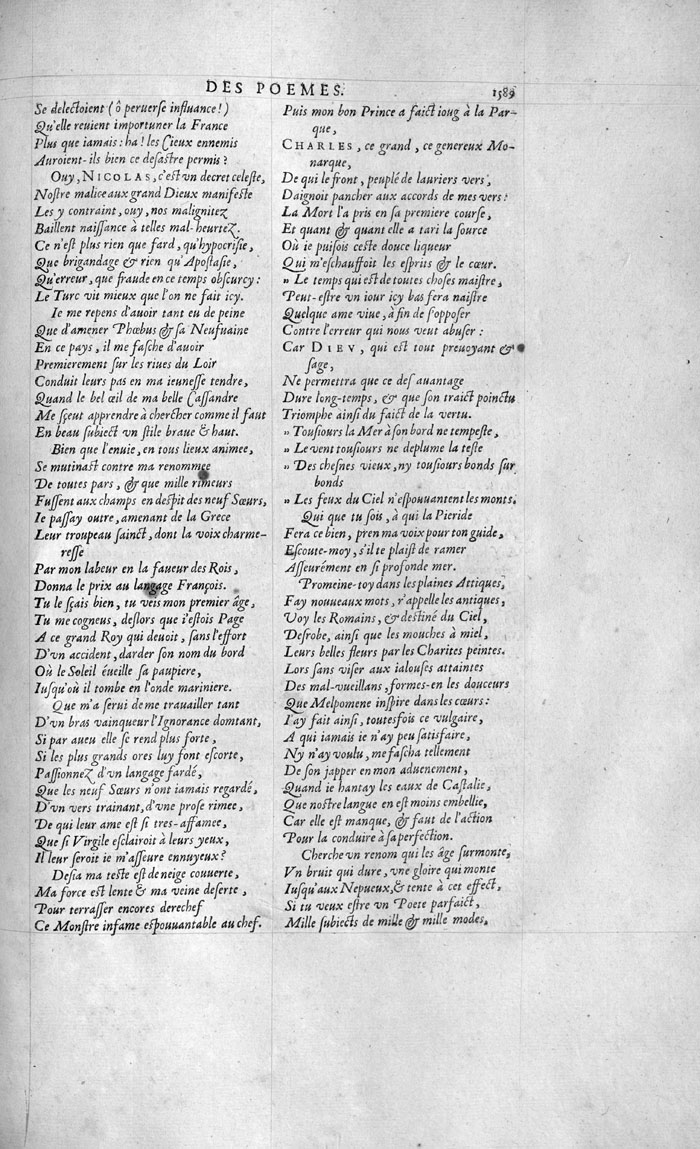 DES POEMES. 1589
Se delectoient (ô peruerse influance!)
Qu'elle reuient importuner la France
Plus que iamais: ha! les Cieux ennemis
Auroient-ils bien ce desastre permis?
Ouy, NICOLAS, c'est vn decret celeste,
Nostre malice aux grand Dieux manifeste
Les y contraint, ouy, nos malignitez
Baillent naissance à telles mal-heurtez.
Ce n'est plus rien que fard, qu'hypocrisie,
Que brigandage & rien qu'Apostasie,
Qu'erreur, que fraude en ce temps obscurcy:
Le Turc vit mieux que l'on ne fait icy.
Ie me repens d'auoir tant eu de peine
Que d'amener Phœbus & sa Neufuaine
En ce pays, il me fasche d'auoir
Premierement sur les riues du Loir
Conduit leurs pas en ma ieunesse tendre,
Quand le bel œil de ma belle Cassandre
Me sçeut apprendre à chercher comme il faut
En beau subiect vn stile braue & haut.
Bien que l'enuie, en tous lieux animee,
Se mutinast contre ma renommee
De toutes pars, & que mille rimeurs
Fussent aux champs en despit des neuf Sœurs,
Ie passay outre, amenant de la Grece
Leur troupeau sainct, dont la voix charme-
resse
Par mon labeur en la faueur des Rois,
Donna le prix au langage François.
Tu le sçais bien, tu veis mon premier âge,
Tu me cogneus, deslors que i'estois Page
A ce grand Roy qui deuoit, sans l'effort
D'vn accident, darder son nom du bord
Où le Soleil éueille sa paupiere,
Iusqu'où il tombe en l'onde mariniere.
Que m'a serui de me trauailler tant
D'vn bras vainqueur l'Ignorance domtant,
Si par aueu elle se rend plus forte,
Si les plus grands ores luy font escorte,
Passionnez d'vn langage fardé,
Que les neuf Sœurs n'ont iamais regardé,
D'vn vers trainant, d'vne prose rimee,
De qui leur ame est si tres-affamee,
Que si Virgile esclairoit à leurs yeux,
Il leur seroit ie m'asseure ennuyeux?
Desia ma teste est de neige couuerte,
Ma force est lente & ma veine deserte,
Pour terrasser encores derechef
Ce Monstre infame espouuantable au chef.
Puis mon bon Prince a faict ioug à la Par-
que,
CHARLES, ce grand, ce genereux Mo-
narque,
De qui le front, peuplé de lauriers vers,
Daignoit pancher aux accords de mes vers:
La Mort l'a pris en sa premiere course,
Et quant & quant elle a tari la source
Où ie puisois ceste douce liqueur
Qui m'eschauffoit les esprits & le cœur.
„ Le temps qui est de toutes choses maistre,
Peut-estre vn iour icy bas fera naistre
Quelque ame viue, à fin de s'opposer
Contre l'erreur qui nous veut abuser:
Car DIEV, qui est tout preuoyant &
sage,
Ne permettra que ce desauantage
Dure long-temps, & que son traict poinctu
Triomphe ainsi du faict de la vertu.
„ Tousiours la Mer à son bord ne tempeste,
„ Le vent tousiours ne deplume la teste
„ Des chesnes vieux, ny tousiours bonds sur
bonds
„ Les feux du Ciel n'espouuantent les monts.
Qui que tu sois, à qui la Pieride
Fera ce bien, pren ma voix pour ton guide,
Escoute-moy, s'il te plaist de ramer
Asseurément en si profonde mer.
Promeine-toy dans les plaines Attiques,
Fay nouueaux mots, r'appelle les antiques,
Voy les Romains, & destiné du Ciel,
Desrobe, ainsi que les mouches à miel,
Leurs belles fleurs par les Charites peintes.
Lors sans viser aux ialouses attaintes
Des mal-vueillans, formes-en les douceurs
Que Melpomene inspire dans les cœurs:
I'ay fait ainsi, toutesfois ce vulgaire,
A qui iamais ie n'ay peu satisfaire,
Ny n'ay voulu, me fascha tellement
De son japper en mon aduenement,
Quand ie hantay les eaux de Castalie,
Que nostre langue en est moins embellie,
Car elle est manque, & faut de l'action
Pour la conduire à sa perfection.
Cherche vn renom qui les âge surmonte,
Vn bruit qui dure, vne gloire qui monte
Iusqu'aux Nepueux, & tente à cet effect,
Si tu veux estre vn Poete parfaict,
Mille subiects de mille & mille modes,